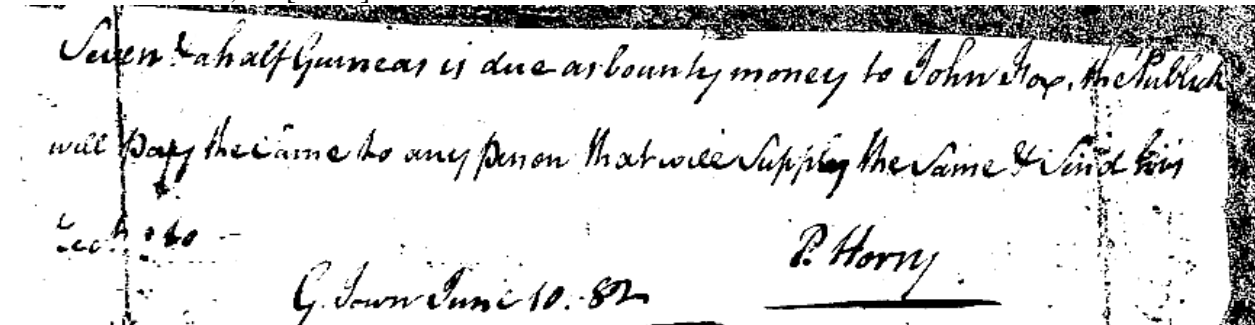 Seven & a half Guineas is due as bounty money to John Fox. the Publick
will pay the Same to any person that will Supply the Same & Send his
to
P. Horry
G. Town June 10. 82